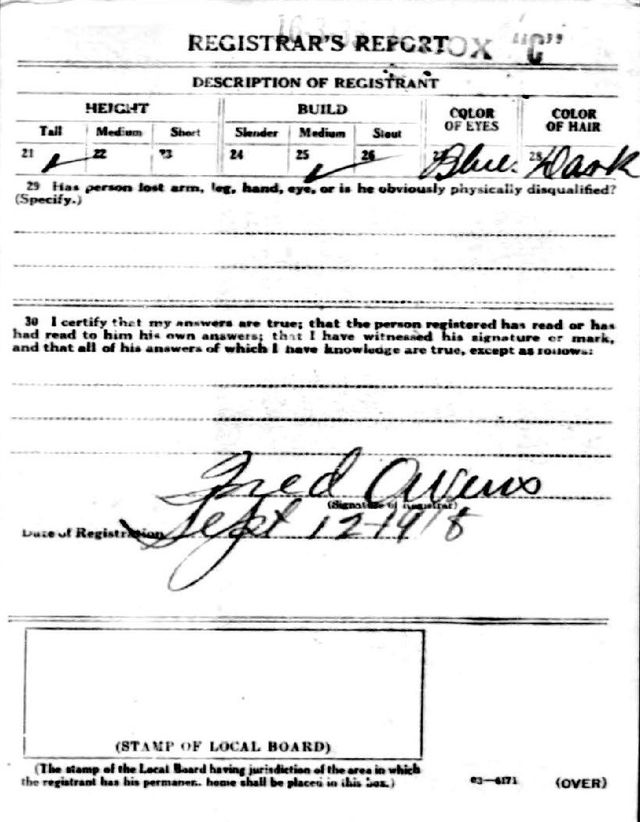 REGISTRAR'S REPORT "C"
DESCRIPTION OF REGISTRANT
HEIGHT BUILD COLOR OF EYES COLOR OF HAIR
Tall Medium Short Slender Medium Stout
21 ✓ 22 23 24 25 ✓ 26 27 Blue. 28 Dark
29 Has person lost arm, leg, hand, eye, or is he obviously physically disqualified?
(Specify.)
30 I certify that my answers are true; that the person registered has read or has
had read to him his own answers; that I have witnessed his signature or mark,
and that all of his answers of which I have knowledge are true, except as follows:
Fred Owens
(Signature of Registrar)
Date of Registration Sept 12-1918
(STAMP OF LOCAL BOARD)
(The stamp of the Local Board having jurisdiction of the area in which
the registrant has his permanent home shall be placed in this box.)
03—6171 (OVER)